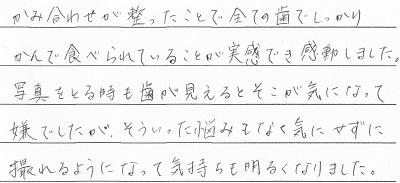 かみ合わせが整ったことで全ての歯でしっかり
かんで食べられていることが実感でき感動しました。
写真をとる時も歯が見えるとそこが気になって
嫌でしたが、そういった悩みもなく気にせずに
撮れるようになって気持ちも明るくなりました。